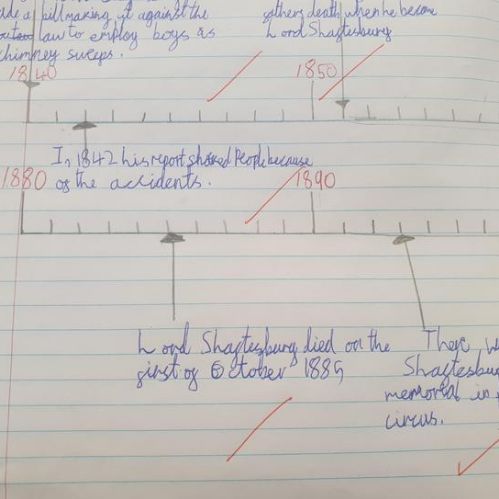 a bill making it against the
law to employ boys as
chimney sweeps.
others death when he become
Lord Shaftesbury
1840
1850
In 1842 his report shared People because
of the accidents.
1880
1890
Lord Shaftesburg died on the
first of October 1885
There
memorial in
circus.